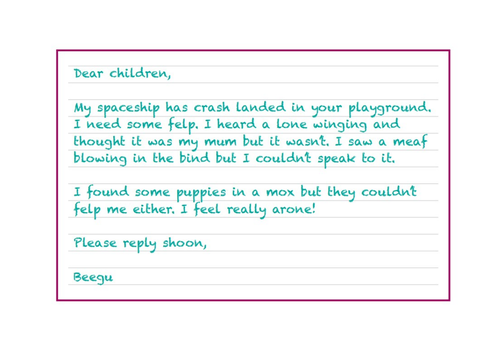 Dear children,
My spaceship has crash landed in your playground.
I need some felp. I heard a lone winging and
thought it was my mum but it wasn't. I saw a meaf
blowing in the bind but I couldn't speak to it.
I found some puppies in a mox but they couldn't
felp me either. I feel really arone!
Please reply shoon,
Beegu